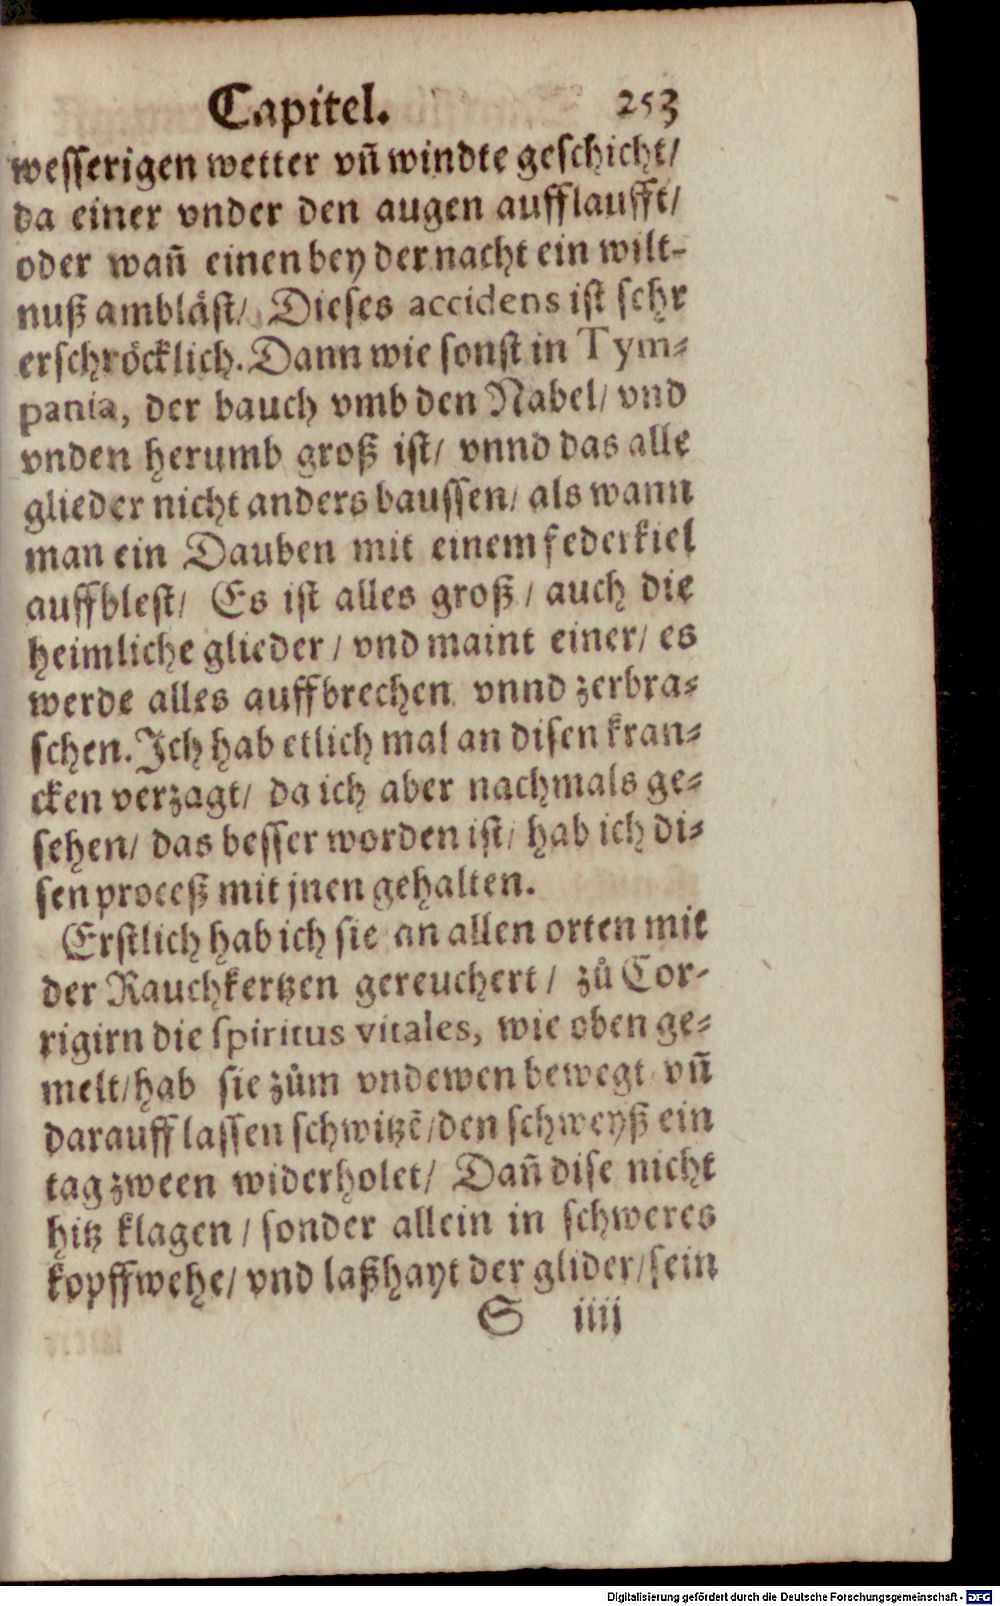 Capitel. 253
wesserigen wetter vñ windte geschicht/
da einer vnder den augen aufflaufft/
oder wañ einen bey der nacht ein wilt-
nuß ambläst/ Dieses accidens ist sehr
erschröcklich. Dann wie sonst in Tym-
pania, der bauch vmb den Nabel/ vnd
vnden herumb groß ist/ vnnd das alle
glieder nicht anders baussen/ als wann
man ein Dauben mit einem federkiel
auffblest/ Es ist alles groß / auch die
heimliche glieder / vnd maint einer/ es
werde alles auffbrechen vnnd zerbra-
schen. Ich hab etlich mal an disen kran-
cken verzagt/ da ich aber nachmals ge-
sehen/ das besser worden ist/ hab ich di-
sen proceß mit jnen gehalten.
Erstlich hab ich sie an allen orten mit
der Rauchkertzen gereuchert / zů Cor-
rigirn die spiritus vitales, wie oben ge-
melt/ hab sie zům vndewen bewegt vñ
darauff lassen schwitzẽ/ den schweyß ein
tag zween widerholet/ Dañ dise nicht
hitz klagen / sonder allein in schweres
kopffwehe/ vnd laßhayt der glider/ sein
S iiij
Digitalisierung gefördert durch die Deutsche Forschungsgemeinschaft - DFG